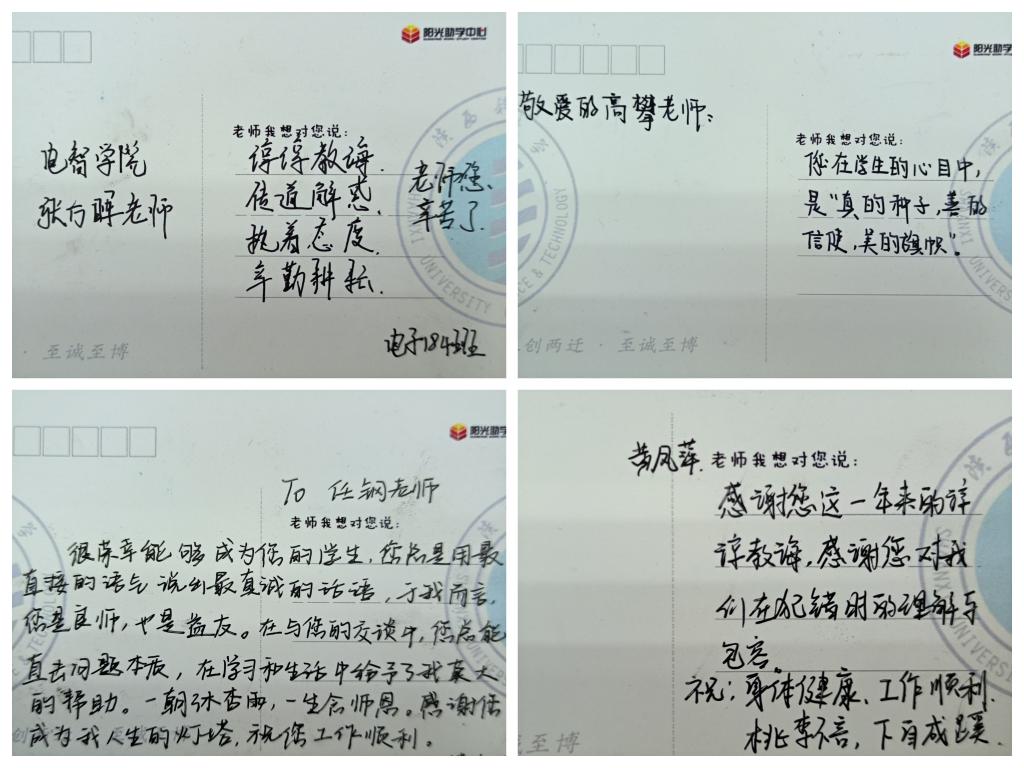 阳光助学中心
老师我想对您说:
电智学院
谆谆教诲.
老师您、
传道解惑.
辛苦了.
执着态度.
辛勤耕耘.
电子184班
UNIVERSITY
· 至诚至博
阳光助学
敬爱的高攀老师:
老师我想对您说:
您在学生的心目中,
是"真的种子,善的
信使,美的旗帜"。
CE & TECHNOLOGY
创两迁 · 至诚至博
阳光助学
To 任钢老师
老师我想对您说:
很荣幸能够成为您的学生,您总是用最
直接的语气说出最真诚的话语,于我而言,
您是良师,也是益友。在与您的交谈中,您总能
直击问题本质,在学习和生活中给予了我莫大
的帮助。一朝沐杏雨,一生念师恩。感谢您
成为我人生的灯塔,祝您工作顺利。
黄凤萍.
老师我想对您说:
感谢您这一年来的谆
谆教诲,感谢您对我
们在犯错时的理解与
包容。
祝:身体健康、工作顺利.
桃李不言,下自成蹊.
至诚至博